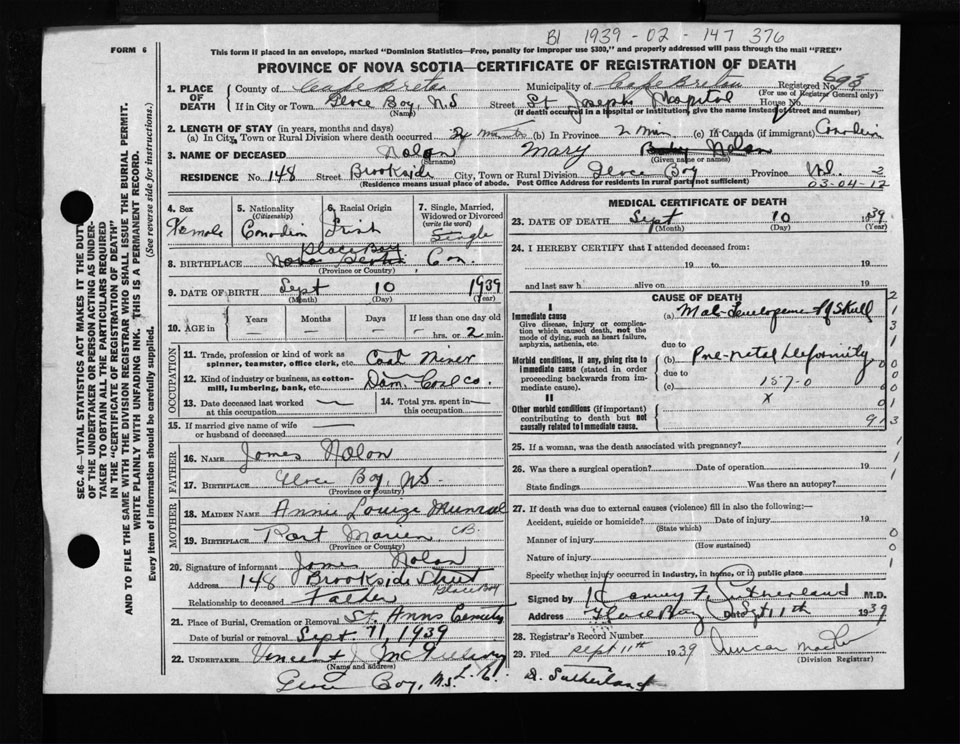 BI 1939 - 02 - 147 376
FORM 6
This form if placed in an envelope, marked "Dominion Statistics—Free, penalty for improper use $300," and properly addressed will pass through the mail "FREE"
PROVINCE OF NOVA SCOTIA—CERTIFICATE OF REGISTRATION OF DEATH
SEC. 46—VITAL STATISTICS ACT MAKES IT THE DUTY
OF THE UNDERTAKER OR PERSON ACTING AS UNDER-
TAKER TO OBTAIN ALL THE PARTICULARS REQUIRED
IN THE "CERTIFICATE OF REGISTRATION OF DEATH"
AND TO FILE THE SAME WITH THE DIVISION REGISTRAR WHO SHALL ISSUE THE BURIAL PERMIT.
WRITE PLAINLY WITH UNFADING INK. THIS IS A PERMANENT RECORD.
Every item of information should be carefully supplied. (See reverse side for instructions.)
1. PLACE OF DEATH County of Cape Breton Municipality of Cape Breton Registered No. 693
(For use of Registrar General only)
If in City or Town Glace Bay, N.S Street St Josephs Hospital House No.
(Name) (If death occurred in a hospital or institution, give the name instead of street and number)
2. LENGTH OF STAY (in years, months and days)
(a) In City, Town or Rural Division where death occurred 2 minutes (b) In Province 2 Min (c) In Canada (if immigrant) Canadian
3. NAME OF DECEASED Nolan Mary Baby Nolan
(Surname) (Given name or names)
RESIDENCE No. 148 Street Brookside City, Town or Rural Division Glace Bay Province N.S. 2
(Residence means usual place of abode. Post Office Address for residents in rural parts not sufficient)
03-04-12
4. Sex Female
5. Nationality (Citizenship) Canadian
6. Racial Origin Irish
7. Single, Married, Widowed or Divorced (write the word) Single
Glace Bay
8. BIRTHPLACE Nova Scotia Can.
(Province or Country)
9. DATE OF BIRTH Sept 10 1939
(Month) (Day) (Year)
10. AGE in Years Months Days If less than one day old
— — — — hrs. or 2 min.
OCCUPATION
11. Trade, profession or kind of work as spinner, teamster, office clerk, etc. Coal Miner
12. Kind of industry or business, as cotton-mill, lumbering, bank, etc. Dom. Coal Co.
13. Date deceased last worked at this occupation — 14. Total yrs. spent in this occupation —
15. If married give name of wife or husband of deceased —
FATHER
16. NAME James Nolan
17. BIRTHPLACE Glace Bay, N.S.
(Province or Country)
MOTHER
18. MAIDEN NAME Annie Louize Munroe
19. BIRTHPLACE Port Morien C.B.
(Province or Country)
20. Signature of informant James Nolan
Address 148 Brookside Street Glace Bay
Relationship to deceased Father
21. Place of Burial, Cremation or Removal St. Anns Cemetery
Date of burial or removal Sept. 11, 1939
22. UNDERTAKER Vincent J. McGillivary
(Name and address)
Glace Bay, N.S.
MEDICAL CERTIFICATE OF DEATH
23. DATE OF DEATH Sept 10 1939
(Month) (Day) (Year)
24. I HEREBY CERTIFY that I attended deceased from:
19 to 19
and last saw h alive on 19
CAUSE OF DEATH
I
Immediate cause
Give disease, injury or complication which caused death, not the mode of dying, such as heart failure, asphyxia, asthenia, etc.
(a) Mal-Developement of Skull
due to
Morbid conditions, if any, giving rise to immediate cause (stated in order proceeding backwards from immediate cause).
(b) Pre-natal Deformity
due to
(c) 157-0
x
II
Other morbid conditions (if important) contributing to death but not causally related to immediate cause.
25. If a woman, was the death associated with pregnancy?
26. Was there a surgical operation? Date of operation 19
State findings Was there an autopsy?
27. If death was due to external causes (violence) fill in also the following:—
Accident, suicide or homicide? Date of injury 19
(State which)
Manner of injury
(How sustained)
Nature of injury
Specify whether injury occurred in industry, in home, or in public place
Signed by Harvey F. Sutherland M.D.
Address Glace Bay Date Sept 11th 1939
28. Registrar's Record Number
29. Filed Sept 11th 1939
(Division Registrar)
D. Sutherland